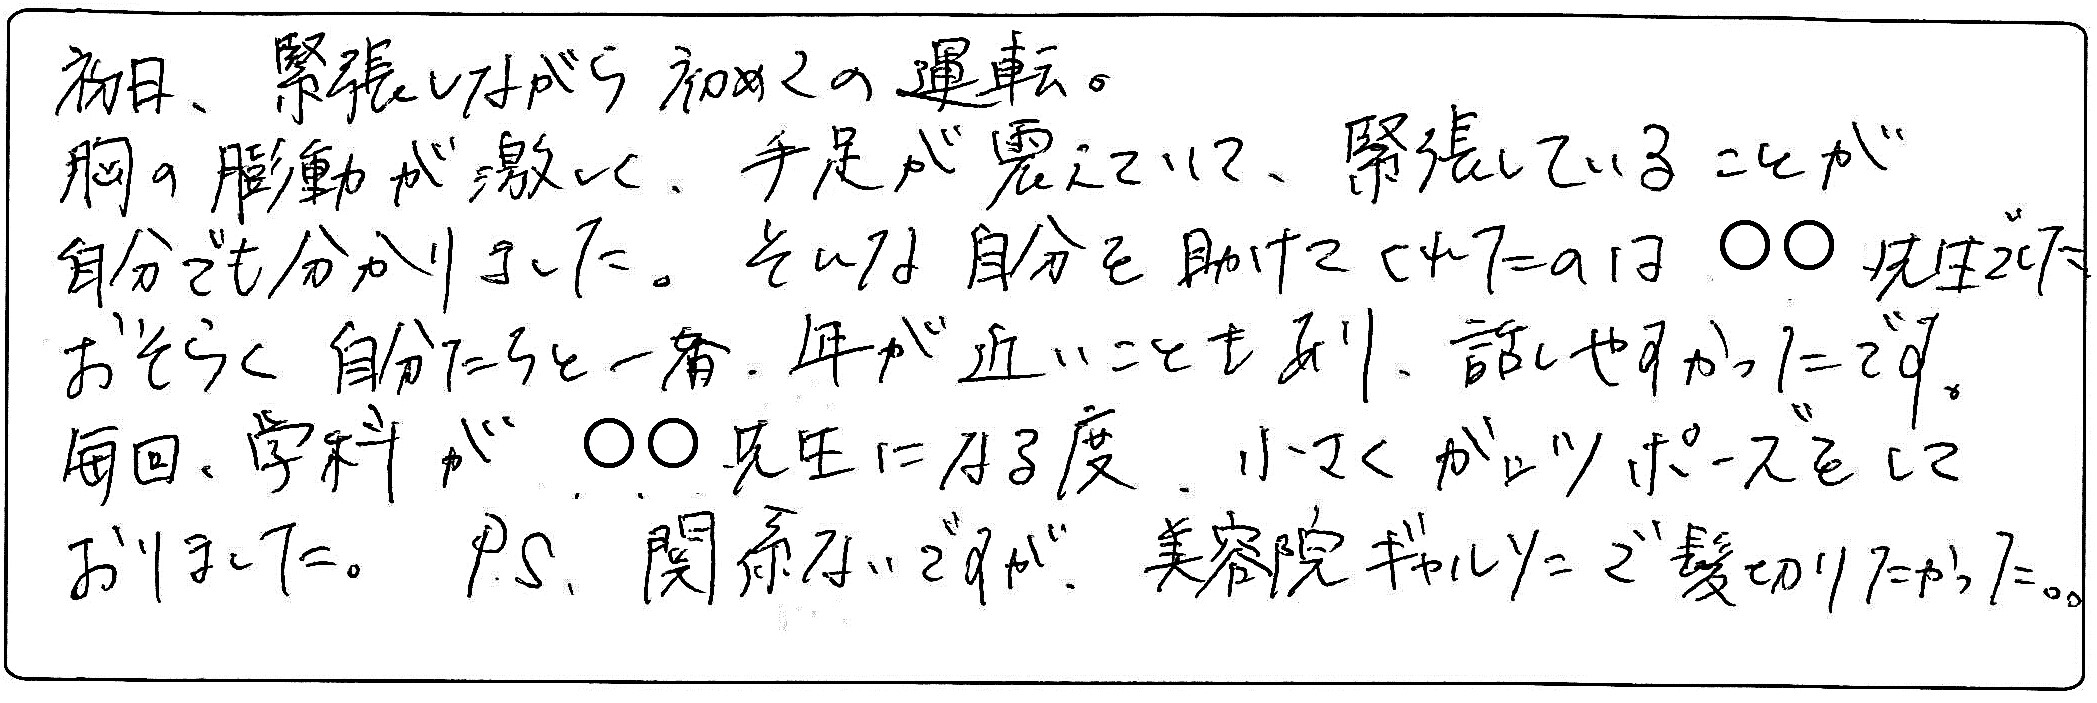 初日、緊張しながら初めての運転。
胸の膨動が激しく、手足が震えていて、緊張していることが
自分でも分かりました。そんな自分を助けてくれたのは〇〇先生でした
おそらく自分たちと一番、年が近いこともあり、話しやすかったです。
毎回、学科が〇〇先生になる度、小さくガッツポーズをして
おりました。P.S、関係ないですが、美容院ギャルソンで髪切りたかった。。